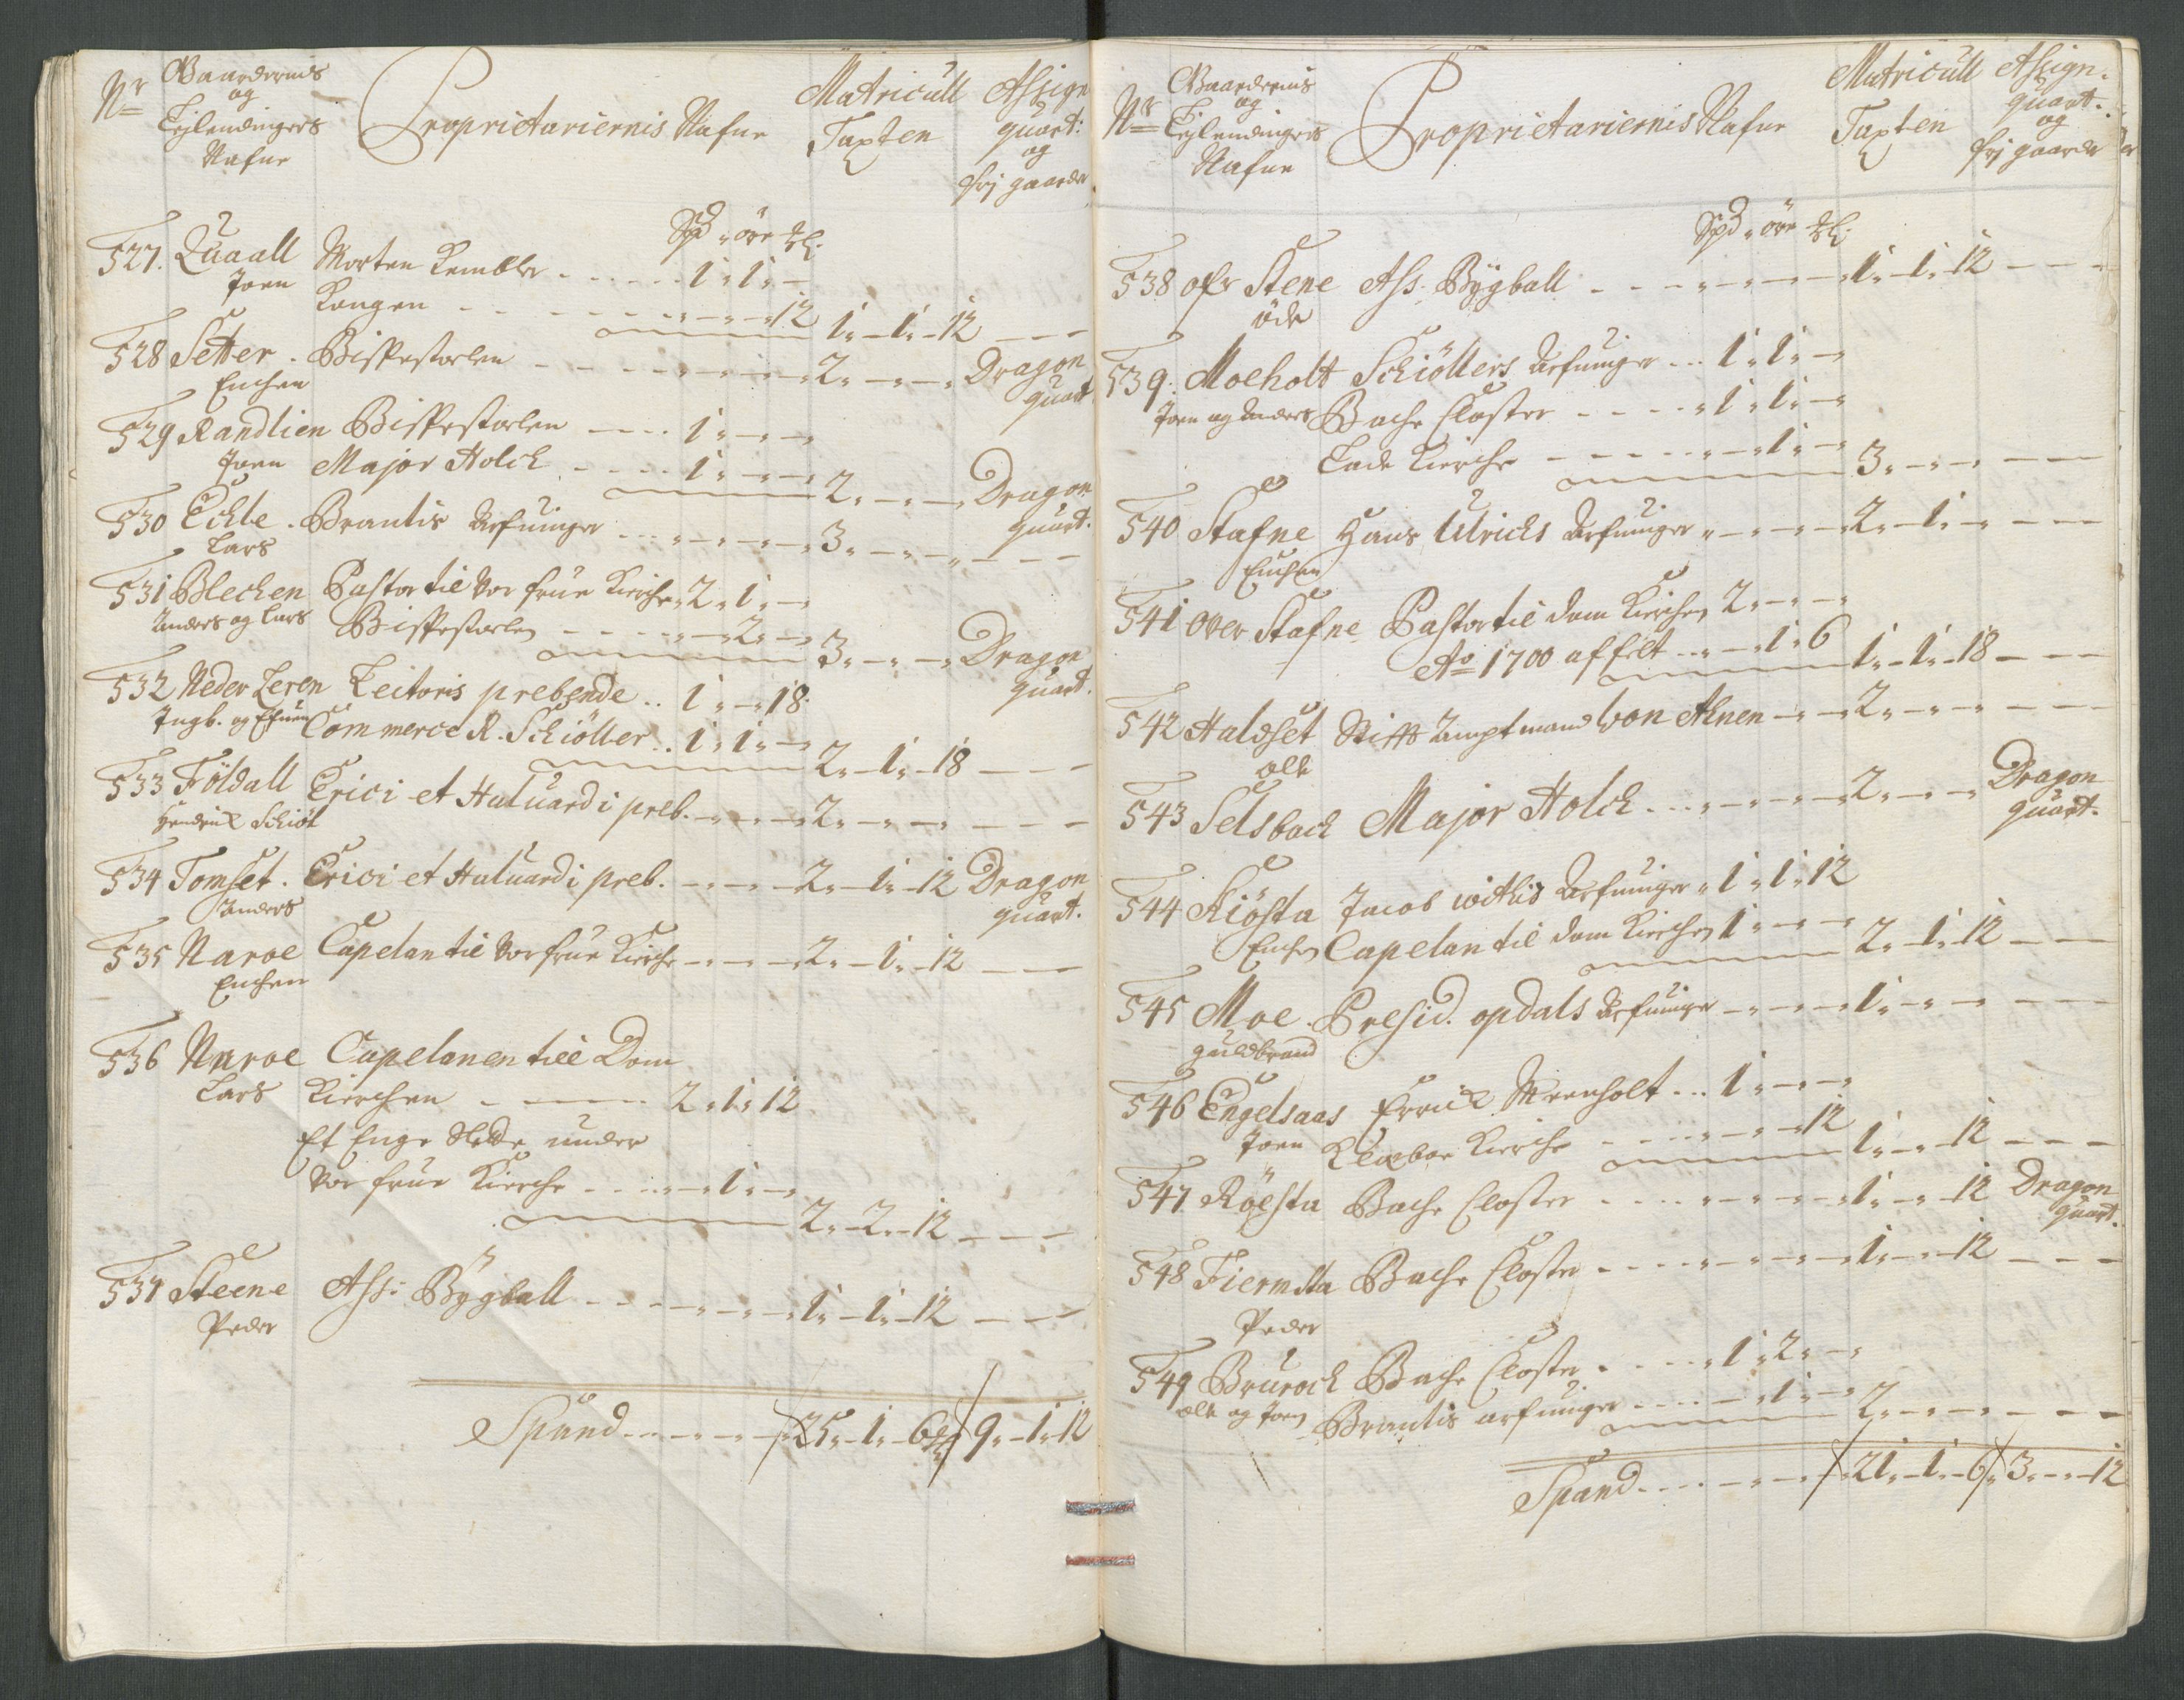 Nr Gaardernis og Lejlendingers Nafne Proprietariernis Nafne Matricull Taxten Assign quart: og frj gaarde
Spd " öre " xl:
527. Quaall Morten Lembler - - - 1 " 1 " -
Joen Kongen - - - 12 1 " - 1 " - 12 - - -
528 Setter . Bispestoelen - - - 2 " - " - " Dragon
Enchen quart
529 Randlien Bispestoelen - - - 1 " - " - "
Joen Major Holck - - - 1 " - " - " 2 " - " - " Dragon
quart.
530 Eckle . Brantis Arfuinger - - - 3 " - " - " - - -
Lars
531 Blecken Pastor til vor frue Kirche " 2 " 1 " -
Anders og Lars Bispestoelen - - - 2 " - " 3 " - " - " Dragon
quart.
532 Neder Leren Lectoris prebende .. 1 " - " 18
Ingb. og Commerce R. Schiöller .. 1 " 1 " - " 2 " - 1 " - 18 - - -
533 Földall Erici et Haluardi preb. - - - 2 " - " - " - - -
Hendrick Schiöt
534 Tomset . Erici et Haluardi preb. - - - 2 " - 1 " - 12 Dragon
Anders quart.
535 Naroe Capelan til vor frue Kirche - - - 2 " - 1 " - 12 - - -
Enchen
536 Naroe Capelanen till Dom
Lars Kirchen - - - 2 " 1 " 12
Et Enge Slette under
vor frue Kirche - - - 1 " - "
2 " - 2 " - 12 - - -
537 Steene Ass: Bÿgball - - - 1 " - 1 " - 12 - - -
Peder
Spand - - - 25 " - 1 " - 6 xl 9 " - 1 " 12
Nr Gaardernis og Lejlendingers Nafne Proprietariernis Nafne Matricull Taxten Assign. quart. og frj gaarde
Spd " öre " xl:
538 ofr Stene Ass. Bÿgball - - - 1 " - 1 " 12 - - -
öde
539. Moeholt Schiöllers Arfuinger - - - 1 " 1 " - "
Joen og Anders Bache Closter - - - 1 " 1 " - "
Lade Kirche - - - 1 " - " 3 " - " - " - - -
540 Stafne Hans Ulrichs Arfuinger " - - - 2 " - 1 " - " - - -
Enchen
541 over Stafne Pastor til dom Kirchen 2 " - " - "
Ao 1700 affelt - - - 1 " 6 1 " - 1 " - 18 - - -
542 Haldset Stiffts Amptmand von Ahnen - - - 2 " - " - " - - -
Ole
543 Selsback Major Holck - - - 2 " - " - " Dragon
quart.
544 Kiösta Jacob withis Arfuinger " 1 " 1 " 12
Enchen Capelan til dom Kirchen 1 " - " - " 2 " - 1 " 12 - - -
545 Moe . Presid. opdals Arfuinger - - - 1 " - " - " - - -
guldbrand
546 Engelsaas Errick Meenholt - - - 1 " - " - "
Joen Klæboe Kirche - - - 12 1 " - " - 12 - - -
547 Röesta Bache Closter - - - 1 " - " - 12 Dragon
quart.
548 Fiermsta Bache Closter - - - 1 " - " - 12 - - -
Peder
549 Brurock Bache Closter - - - 1 " 2 " - "
Ole og Joen Brantis arfuinger - - - 1 " - " 2 " - " - " - - -
Spand - - - 21 " - 1 " - 6 " 3 " - " - 12